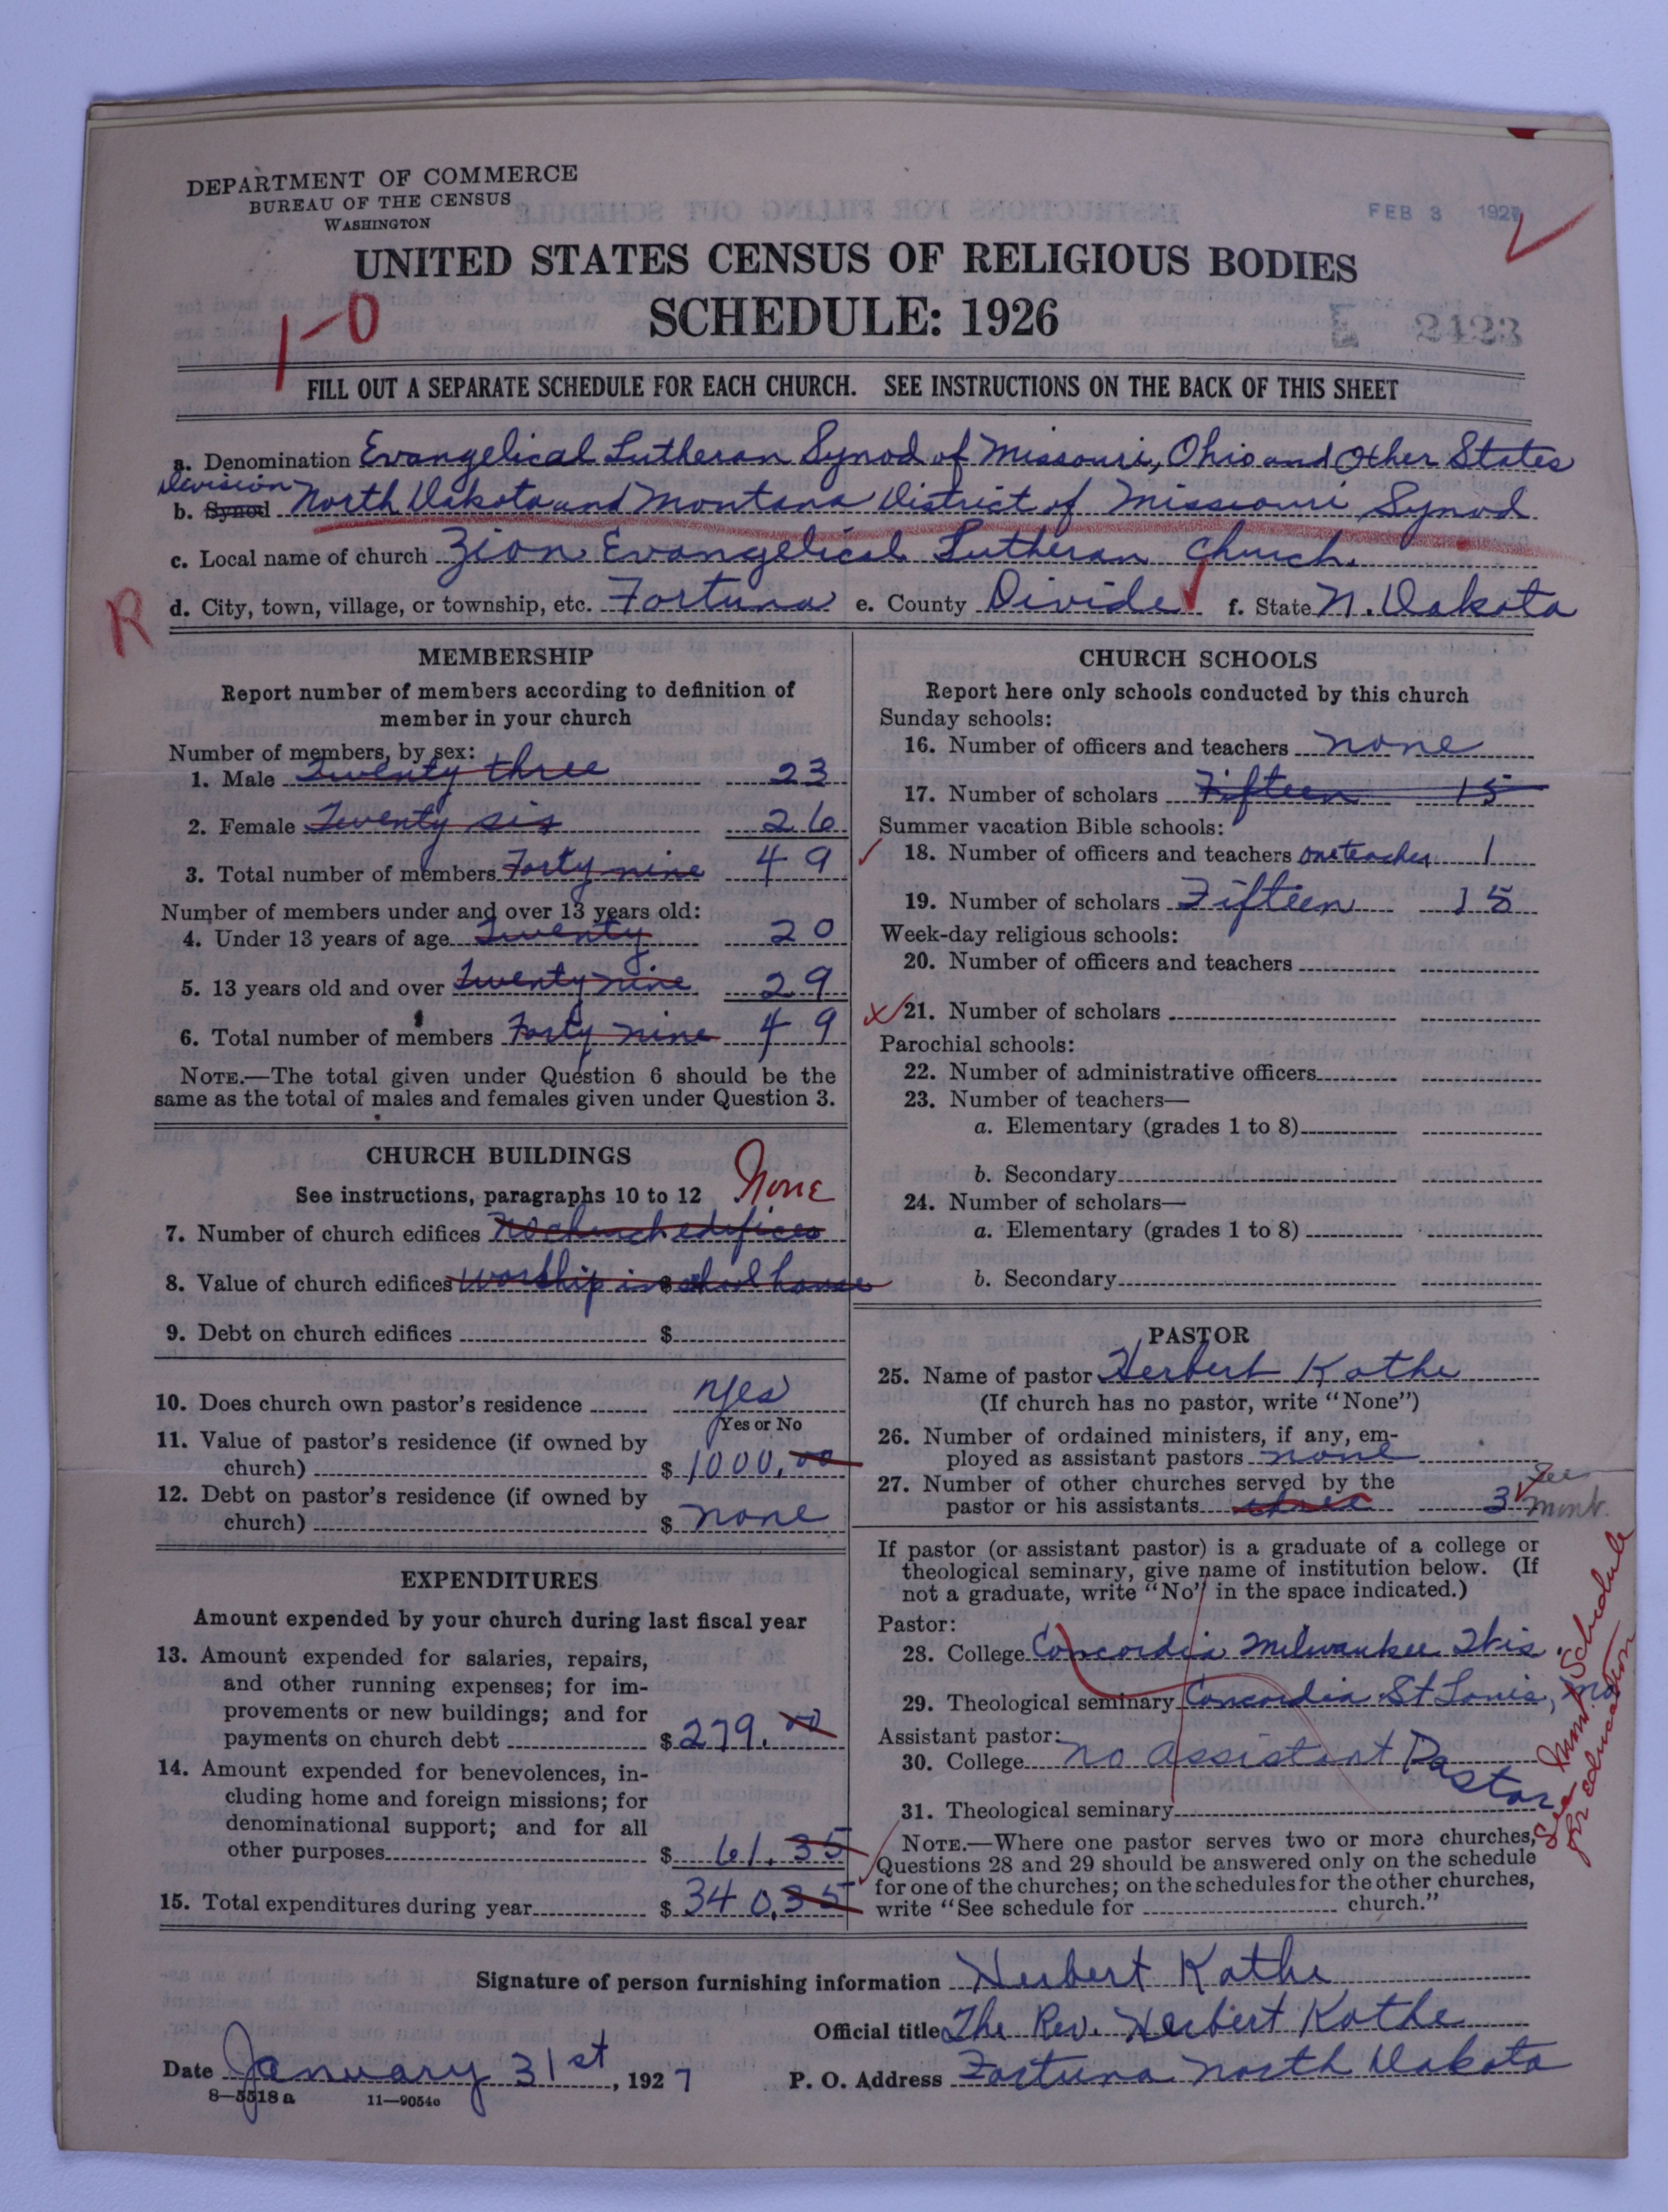 DEPARTMENT OF COMMERCE
BUREAU OF THE CENSUS
WASHINGTON
FEB 3 1927
UNITED STATES CENSUS OF RELIGIOUS BODIES
SCHEDULE: 1926
1-0
2423
FILL OUT A SEPARATE SCHEDULE FOR EACH CHURCH. SEE INSTRUCTIONS ON THE BACK OF THIS SHEET
a. Denomination Evangelical Lutheran Synod of Missouri, Ohio and Other States
Division
b. Synod North Dakota and Montana District of Missouri Synod
c. Local name of church Zion Evangelical Lutheran Church.
R
d. City, town, village, or township, etc. Fortuna e. County Divide f. State N. Dakota
MEMBERSHIP
Report number of members according to definition of
member in your church
Number of members, by sex:
1. Male Twenty three 23
2. Female Twenty six 26
3. Total number of members Forty nine 49
Number of members under and over 13 years old:
4. Under 13 years of age Twenty 20
5. 13 years old and over Twenty nine 29
6. Total number of members Forty nine 49
NOTE.—The total given under Question 6 should be the
same as the total of males and females given under Question 3.
CHURCH BUILDINGS
See instructions, paragraphs 10 to 12 None
7. Number of church edifices No church edifices
8. Value of church edifices worship in school house
9. Debt on church edifices $
10. Does church own pastor's residence yes
Yes or No
11. Value of pastor's residence (if owned by
church) $ 1000.00
12. Debt on pastor's residence (if owned by
church) $ none
EXPENDITURES
Amount expended by your church during last fiscal year
13. Amount expended for salaries, repairs,
and other running expenses; for im-
provements or new buildings; and for
payments on church debt $ 279.00
14. Amount expended for benevolences, in-
cluding home and foreign missions; for
denominational support; and for all
other purposes $ 61.35
15. Total expenditures during year $ 340.35
CHURCH SCHOOLS
Report here only schools conducted by this church
Sunday schools:
16. Number of officers and teachers none
17. Number of scholars Fifteen 15
Summer vacation Bible schools:
18. Number of officers and teachers one teacher 1
19. Number of scholars Fifteen 15
Week-day religious schools:
20. Number of officers and teachers
21. Number of scholars
Parochial schools:
22. Number of administrative officers
23. Number of teachers—
a. Elementary (grades 1 to 8)
b. Secondary
24. Number of scholars—
a. Elementary (grades 1 to 8)
b. Secondary
PASTOR
25. Name of pastor Herbert Kothe
(If church has no pastor, write "None")
26. Number of ordained ministers, if any, em-
ployed as assistant pastors none
27. Number of other churches served by the
pastor or his assistants three 3 See
Mont.
If pastor (or assistant pastor) is a graduate of a college or
theological seminary, give name of institution below. (If
not a graduate, write "No" in the space indicated.)
Pastor:
28. College Concordia Milwaukee Wis.
29. Theological seminary Concordia St Louis, Mo
Assistant pastor:
30. College no assistant Pastor
31. Theological seminary
See Mont Schedule
for education
NOTE.—Where one pastor serves two or more churches,
Questions 28 and 29 should be answered only on the schedule
for one of the churches; on the schedules for the other churches,
write "See schedule for church."
Signature of person furnishing information Herbert Kothe
Official title The Rev. Herbert Kothe
Date January 31st, 1927 P. O. Address Fortuna North Dakota
8—5518 a 11—9054c